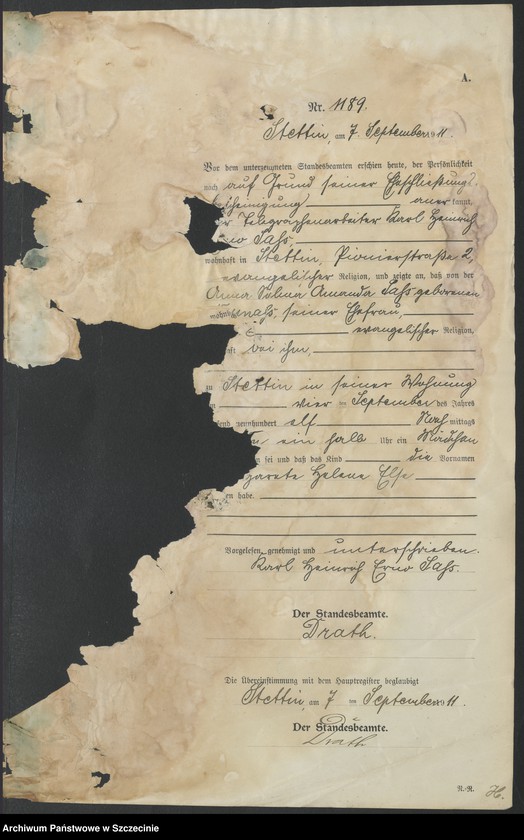 A.
Nr. 1189.
Stettin, am 7. September 1911.
Vor dem unterzeichneten Standesbeamten erschien heute, der Persönlichkeit
nach auf Grund seiner Eheschließungs-
scheinigung anerkannt,
Telegraphenarbeiter Karl Heinrich
Saß,
wohnhaft in Stettin, Pionierstraße 2,
evangelischer Religion, und zeigte an, daß von der
Anna Amanda Saß geborenen
seiner Ehefrau,
evangelischer Religion,
bei ihm,
zu Stettin in seiner Wohnung
vier September des Jahres
tausend neunhundert elf Nachmittags
ein halb Uhr ein Mädchen
sei und daß das Kind die Vornamen
garete Helene Else
en habe.
Vorgelesen, genehmigt und unterschrieben.
Karl Heinrich Erno Saß.
Der Standesbeamte.
Drath.
Die Übereinstimmung mit dem Hauptregister beglaubigt
Stettin, am 7 ten September 1911.
Der Standesbeamte.
Drath
R.-R.
H.
Archiwum Państwowe w Szczecinie